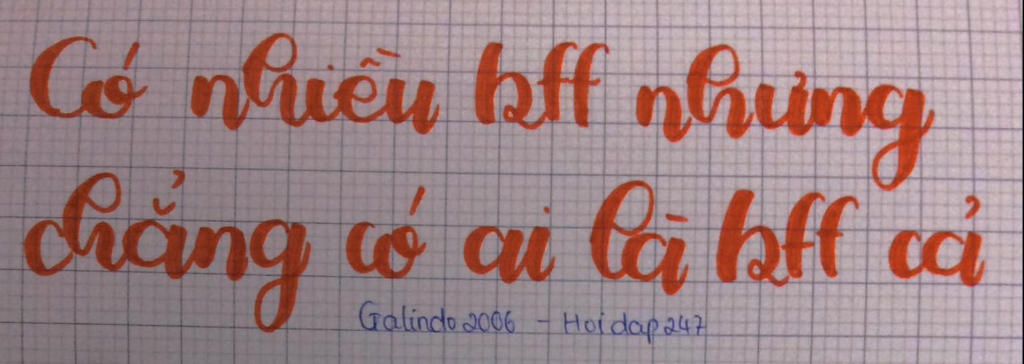 Có nhiều bff nhưng
chẳng có ai là bff cả
Galindo2006 - Hoidap247